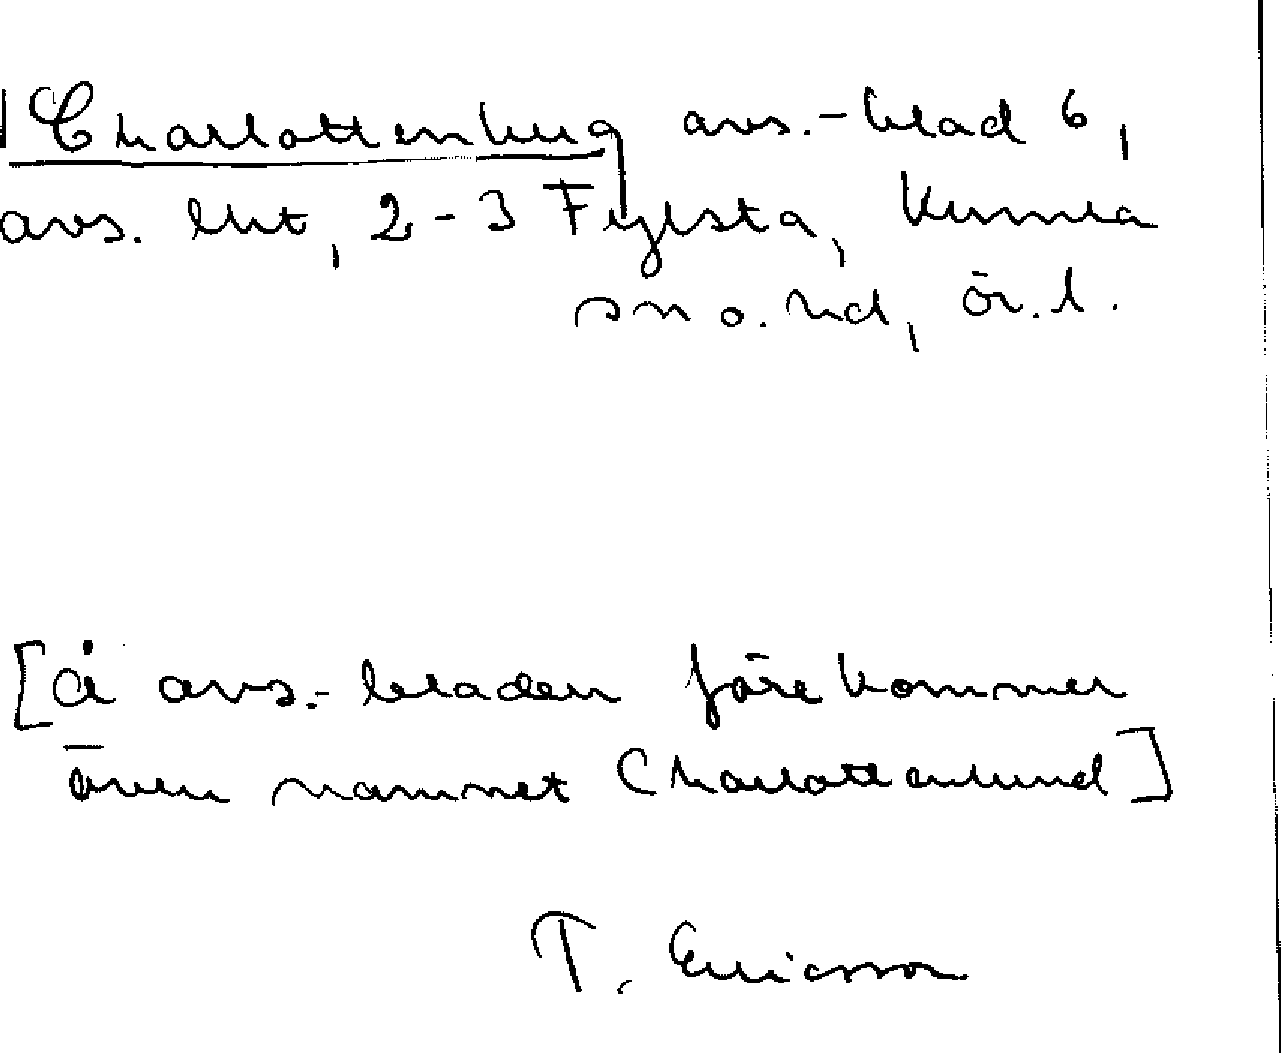 Charlottenburg avs.-blad 6,
avs. lht, 2-3 Fylsta, Kumla
sn o. hd, ör. l.
[å avs.-bladen förekommer
även namnet Charlottenlund]
T. Ericsson